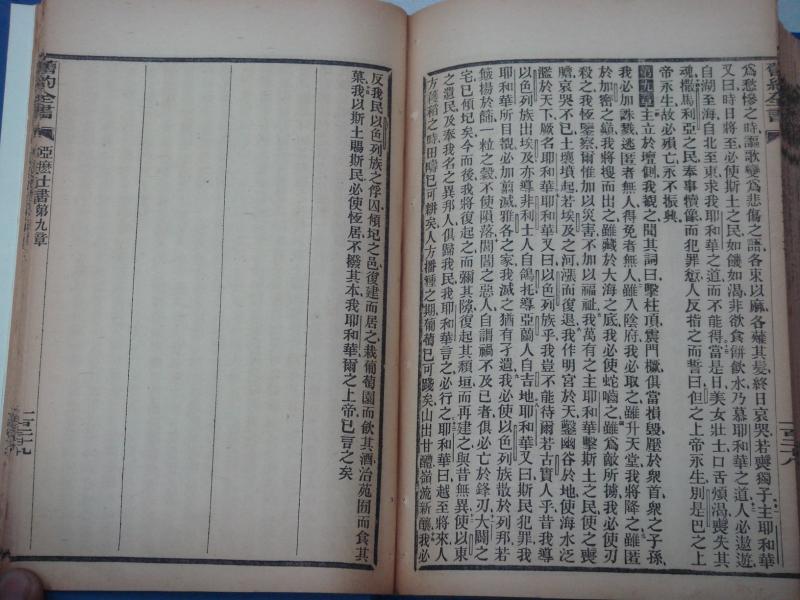 為愁慘之時謳歌變為悲傷之語各束以麻各薙其髮終日哀哭若喪獨子主耶和華
又曰時日將至必使斯土之民如饑如渴非欲食餅飲水乃慕耶和華之道人必遨遊
自湖至海自北至東求我耶和華之道而不能得當是日美女壯士口舌煩渴喪失其
魂撒馬利亞之民奉事犢像而犯罪愆人反指之而誓曰但之上帝永生別是巴之上
帝永生故必殞亡永不振興
第九章主立於壇側我觀之聞其詞曰擊柱頂震門橛俱當損毀壓於衆首衆之子孫
我必加誅戮逃匿者無人得免者無人雖入陰府我必取之雖升天堂我將降之雖匿
於加密之巔我將搜而出之雖藏於大海之底我必使蛇嚙之雖為敵所擄我必使刃
殺之我恆鑒察爾惟加以災害不加以福祉我萬有之主耶和華擊斯土之民使之喪
膽哀哭不已土壤墳起若埃及之河漲而復退我作明宮於天鑿幽谷於地使海水泛
濫於天下厥名耶和華耶和華又曰以色列族乎我豈不能待爾若古實人乎昔我導
以色列族出埃及亦導非利士人自鴿托導亞蘭人自吉地耶和華又曰斯民犯罪我
耶和華所目覩必加翦滅雅各之家我滅之猶有孑遺我必使以色列族散於列邦若
簸揚於篩一粒之穀不使隕落閭閻之惡人自謂禍不及已者俱必亡於鋒刃大闢之
宅已傾圮矣今而後我將復起之而彌其隙復起其頹垣而再建之與昔無異使以東
之遺民及奉我名之異邦人俱歸我民我耶和華言之必行之耶和華曰越至將來人
方穫稻之時田疇已可耕矣人方播種之期葡萄已可踐矣山出甘醴嶺流新釀我必
反我民以色列族之俘囚傾圮之邑復建而居之栽葡萄園而飲其酒治苑囿而食其
菓我以斯土賜斯民必使恆居不撥其本我耶和華爾之上帝已言之矣
舊約全書 啞麼士書第九章 一百二十九